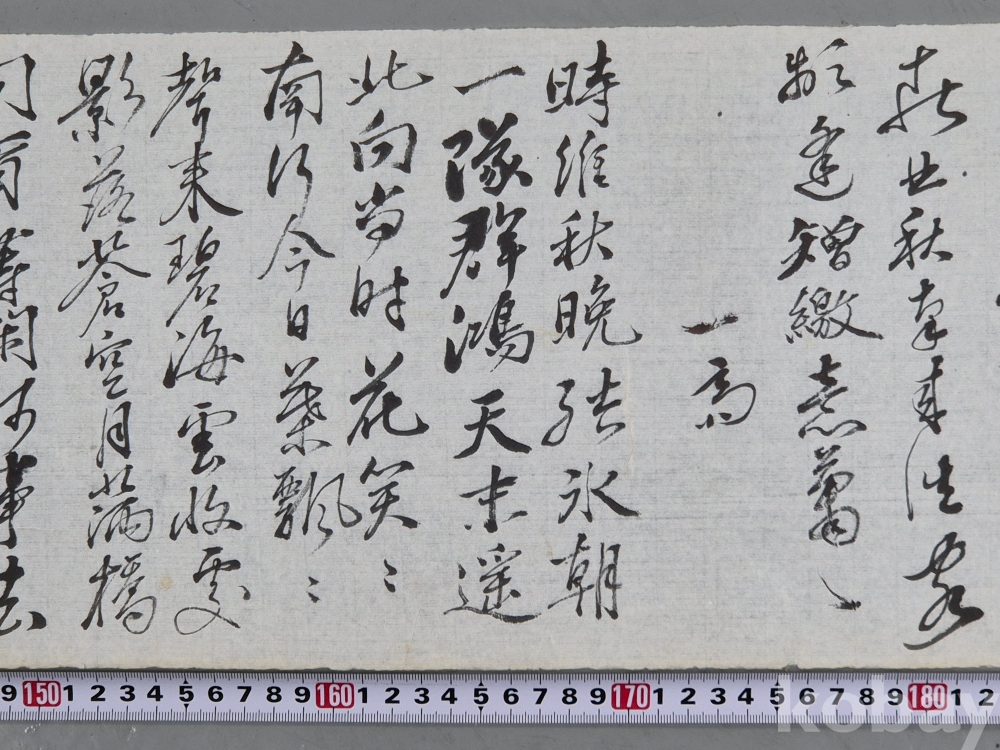 春北秋南来往客
頻逢矰繳意蕭〻
一高
時維秋晩結氷朝
一隊群鴻天末遥
北向当時花笑〻
南行今日葉飄〻
聲来碧海雲收處
影落蒼空月満橋
9 150 1 2 3 4 5 6 7 8 9 160 1 2 3 4 5 6 7 8 9 170 1 2 3 4 5 6 7 8 9 180 1 2
kobay